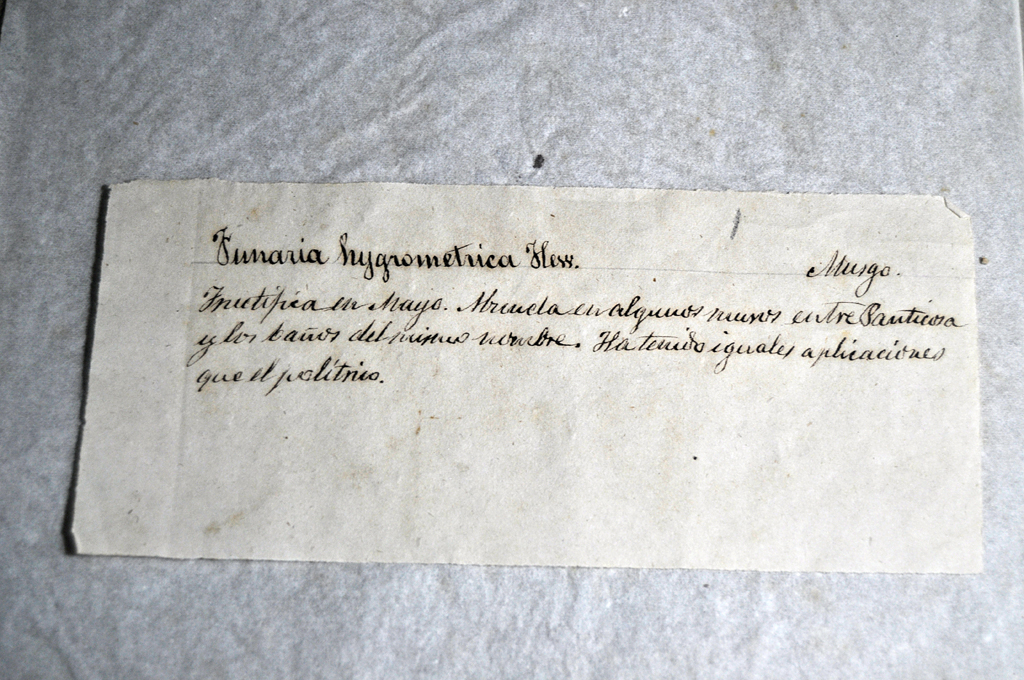 Funaria hygrometrica Hew. Musgo.
Fructifica en Mayo. Abunda en algunos muros entre Panticosa
y los baños del mismo nombre. Ha tenido iguales aplicaciones
que el politrico.